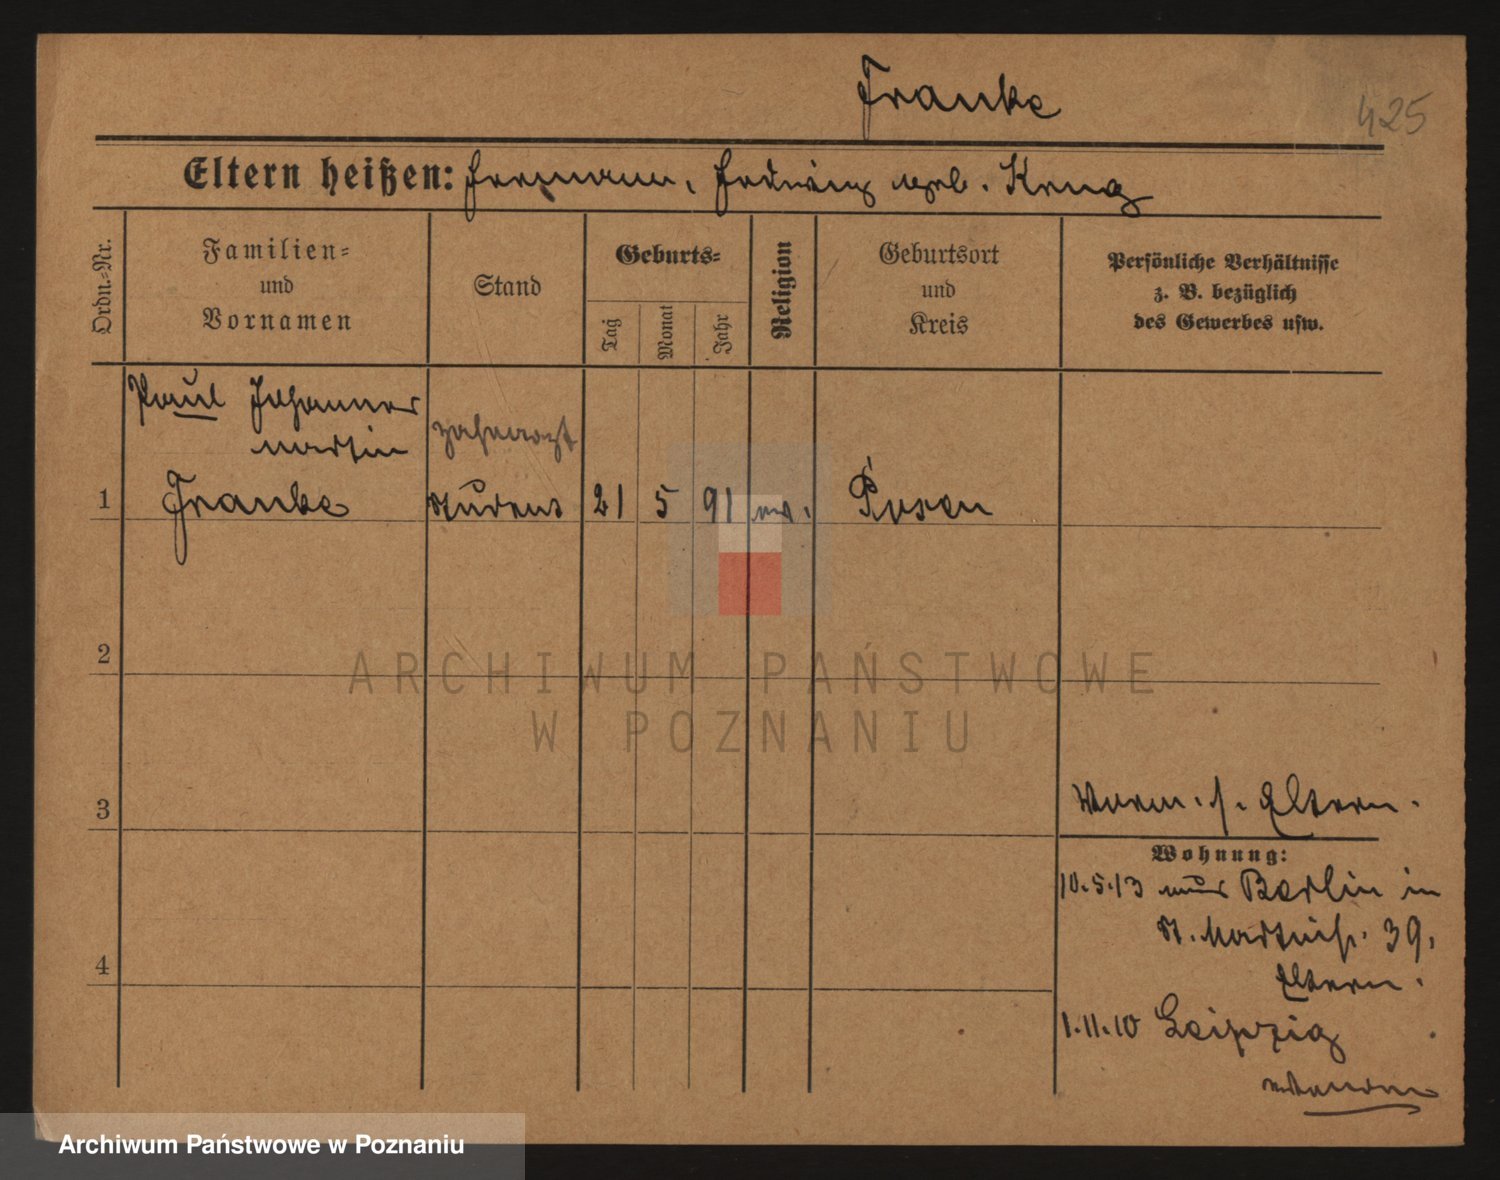 Franke
425
Eltern heißen: Hermann, Hedwig geb. Krug
Ordn.-Nr.
Familien-
und
Vornamen
Stand
Geburts-
Tag
Monat
Jahr
Religion
Geburtsort
und
Kreis
Persönliche Verhältnisse
z. B. bezüglich
des Gewerbes usw.
Paul Johannes
Martin
Zahnarzt
1 Franke Student 21 5 91 ev. Posen
2
ARCHIWUM PAŃSTWOWE
W POZNANIU
3
Vorm. s. Eltern.
Wohnung:
10.5.13 aus Berlin in
St. Martinstr. 39.
Eltern.
4
1.11.10 Leipzig
Archiwum Państwowe w Poznaniu